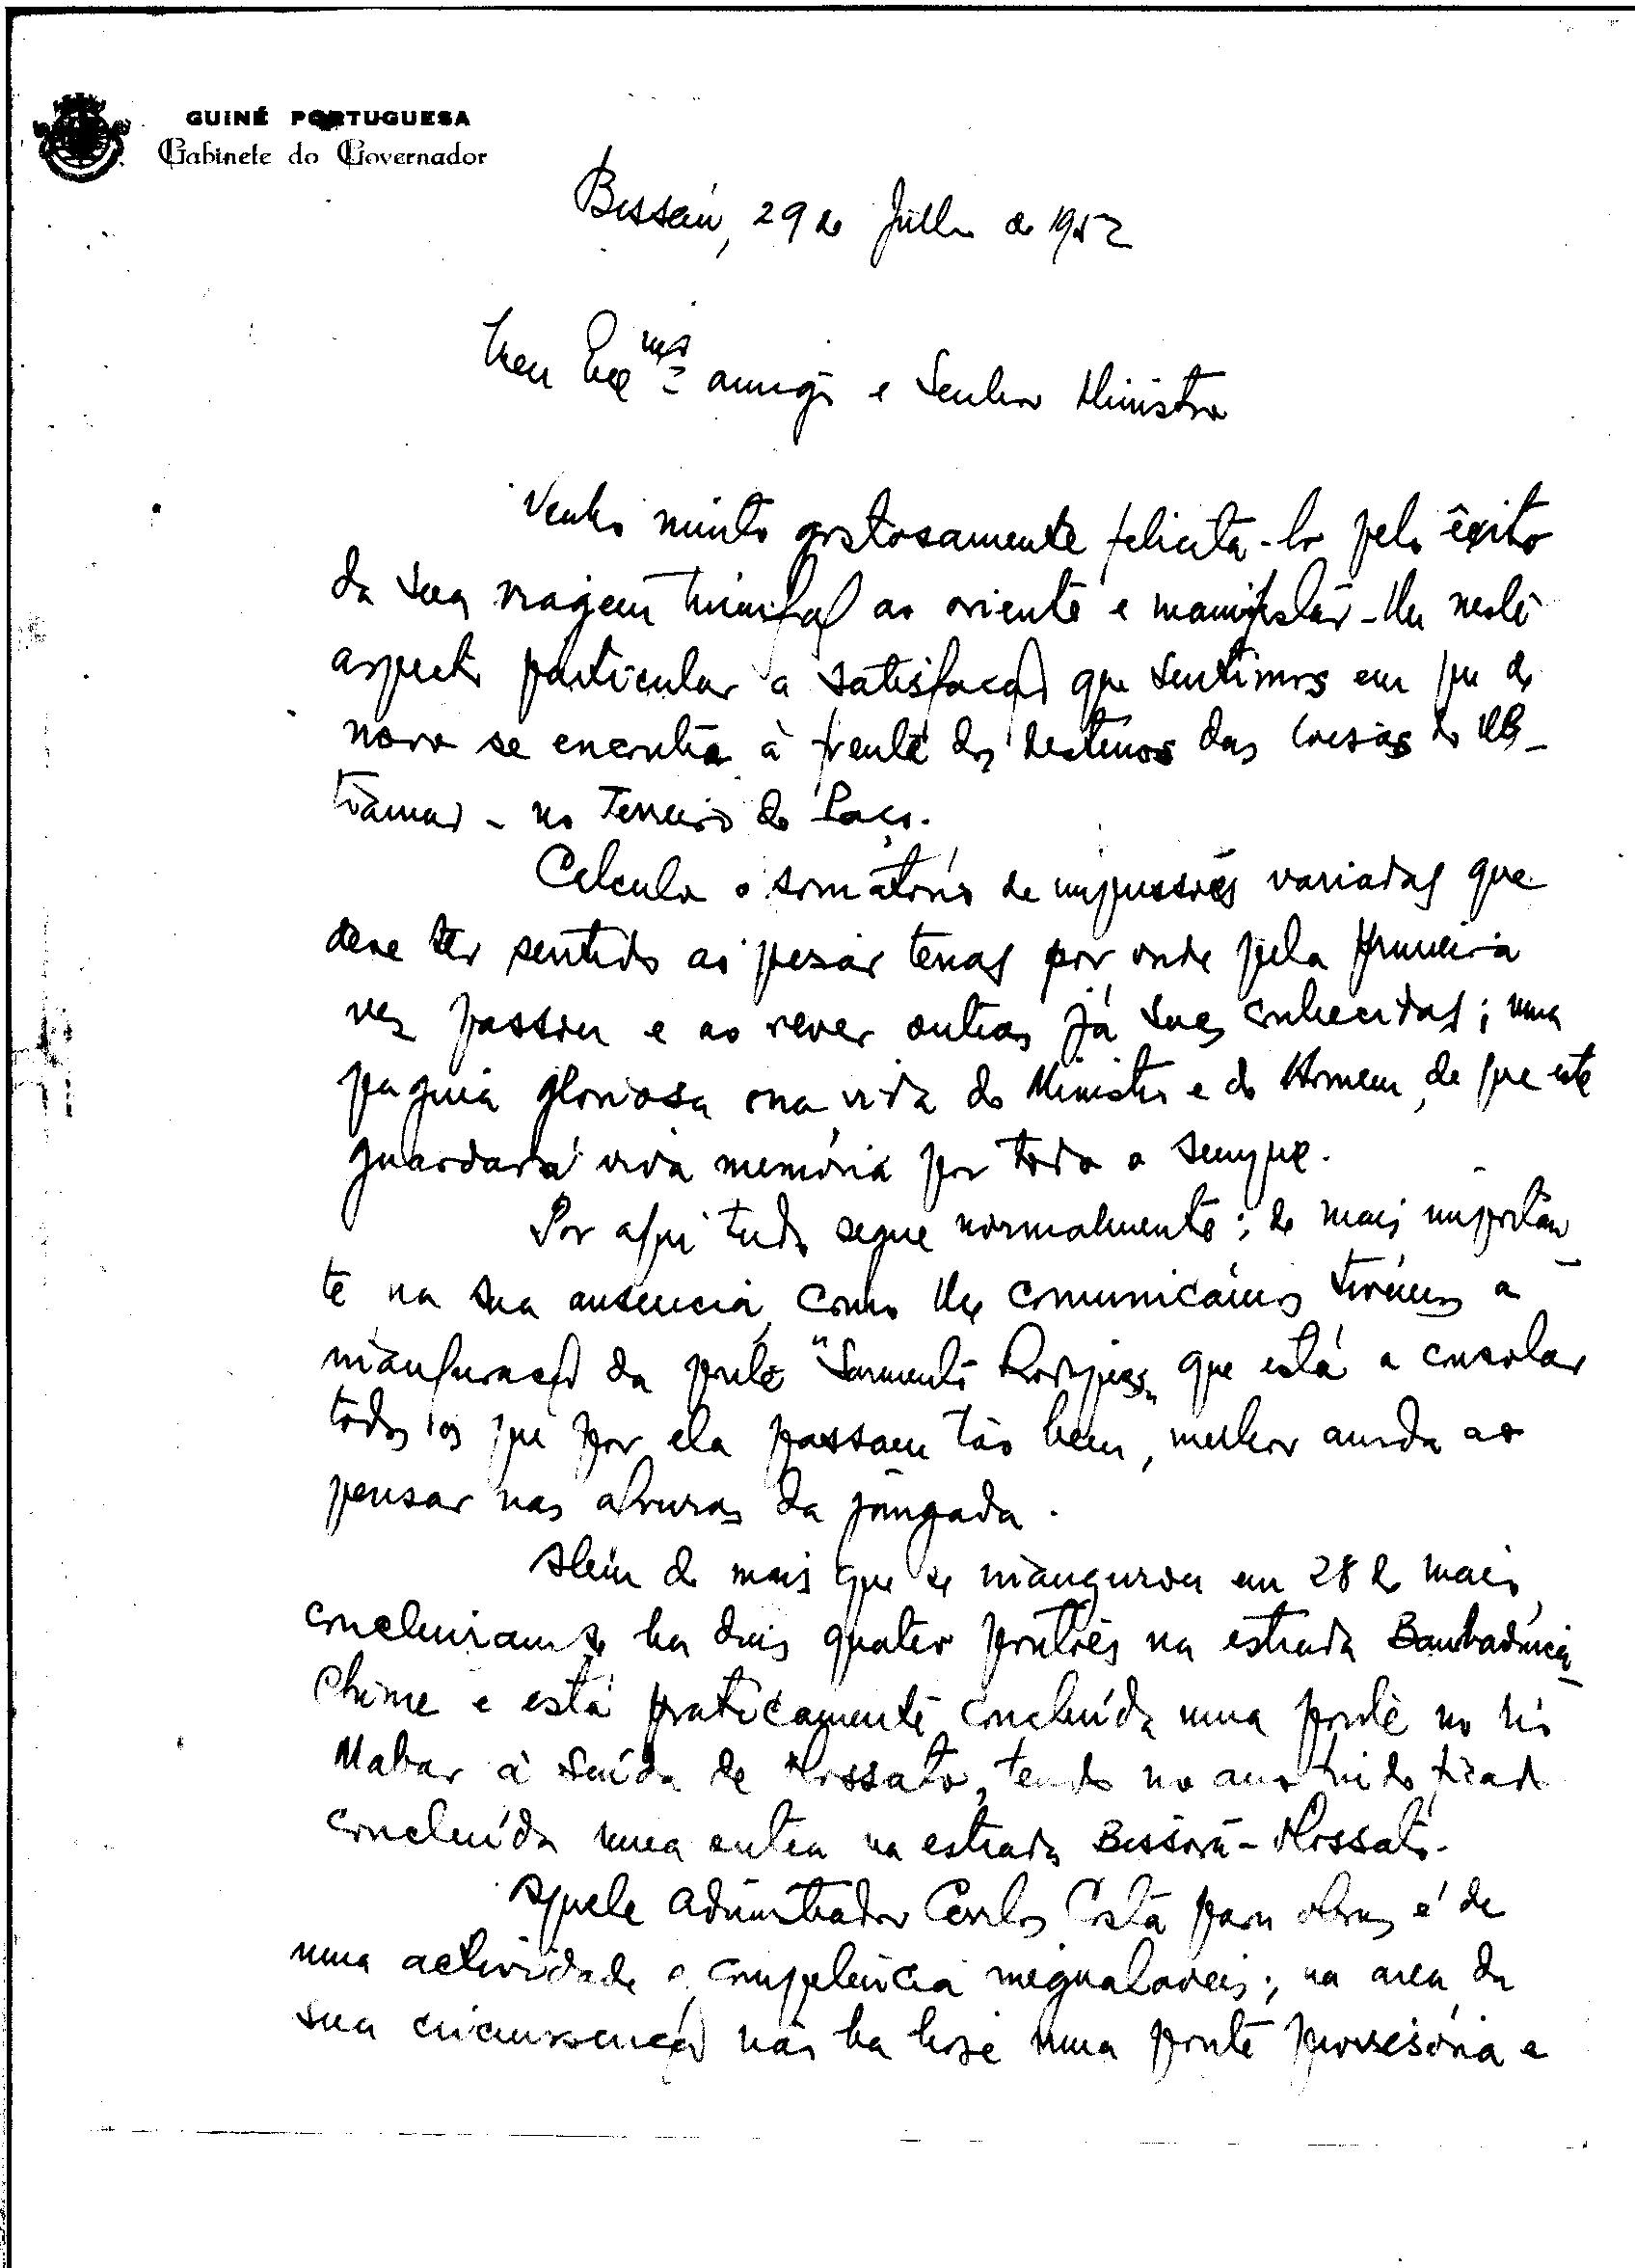 GUINÉ PORTUGUESA
Gabinete do Governador
Bissau, 29 de Julho de 1952
Meu Exmº amigo e Senhor Ministro
Venho muito gostosamente felicitá-lo pelo êxito
da sua viagem triunfal ao oriente e manifestar-lhe neste
aspecto particular a satisfação que sentimos em que de
novo se encontra à frente dos destinos das coisas do Ul-
tramar - no Terreiro do Paço.
Calculo o somatório de impressões variadas que
deve ter sentido ao pisar terras por onde pela primeira
vez passou e ao rever outras já suas conhecidas; uma
página gloriosa na vida do Ministro e do Homem, de que este
guardará viva memória por todo o sempre.
Por aqui tudo segue normalmente; de mais importan-
te na sua ausencia, como lhe comunicámos tivémos a
inauguração da ponte "Sarmento Rodrigues" que está a consolar
todos os que por ela passam tão bem, melhor ainda ao
pensar nas agruras da jangada.
Além do mais que se inaugurou em 28 de Maio,
concluiram-se ha dias quatro pontões na estrada Bambadinca-
Chime e está praticamente concluída uma ponte no rio
Mabar à saída de Mossato, tendo no ano findo ficado
concluída uma outra na estrada Bissorã-Mossato.
Aquele administrador Carlos Costa para obras é de
uma actividade e competência inegualaveis; na area da
sua circunscrição não ha hoje uma ponte provisória e